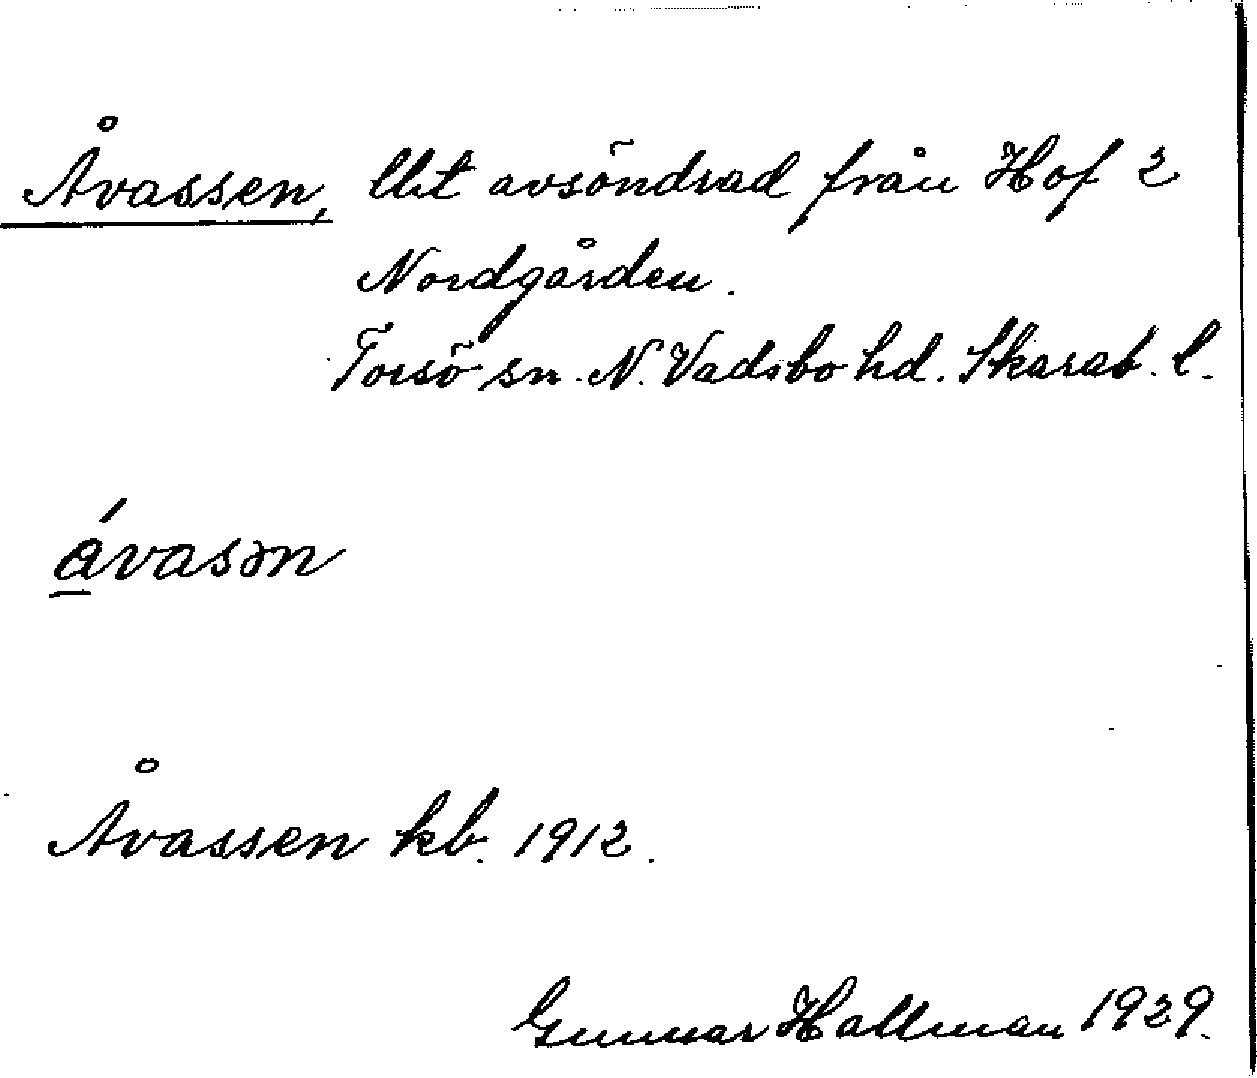 Åvassen, lht avsöndrad från Hof 2
Nordgården.
Torsö sn. N. Vadsbo hd. Skarab. l.
ávasən
Åvassen kb. 1912.
Gunnar Hallman 1929.